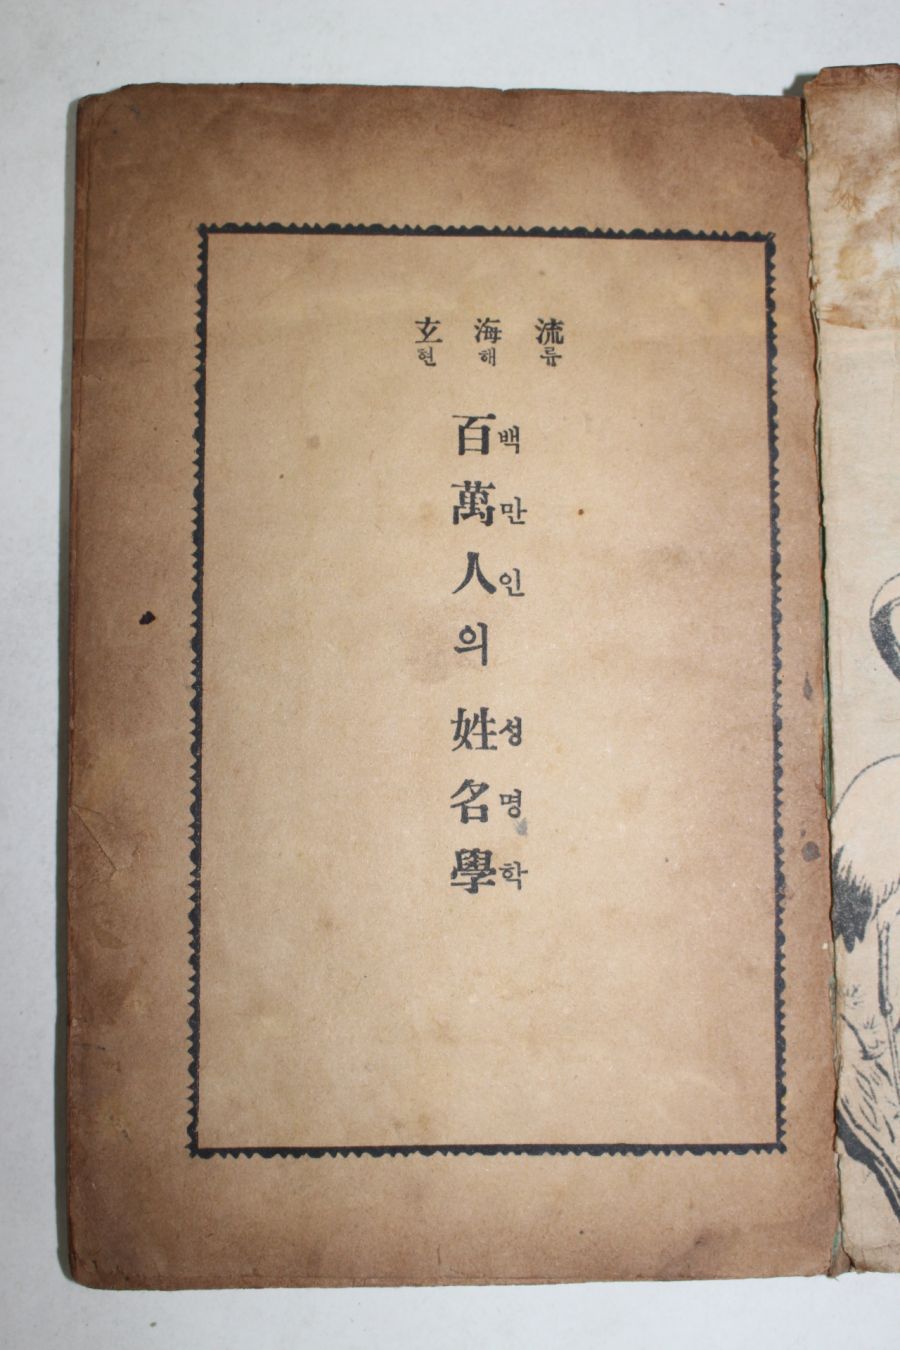 流海玄
류해현
百萬人의 姓名學
백만인 성명학